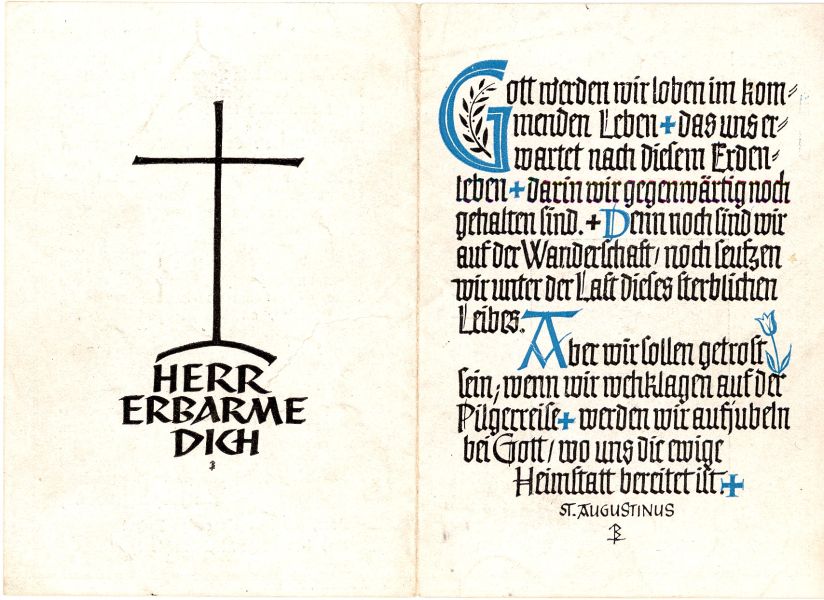 HERR
ERBARME
DICH
Gott werden wir loben im kom-
menden Leben + das uns er-
wartet nach diesem Erden-
leben + darin wir gegenwärtig noch
gehalten sind. + Denn noch sind wir
auf der Wanderschaft / noch seufzen
wir unter der Last dieses sterblichen
Leibes.
Aber wir sollen getrost
sein; wenn wir wehklagen auf der
Pilgerreise + werden wir aufjubeln
bei Gott / wo uns die ewige
Heimstatt bereitet ist. +
ST. AUGUSTINUS